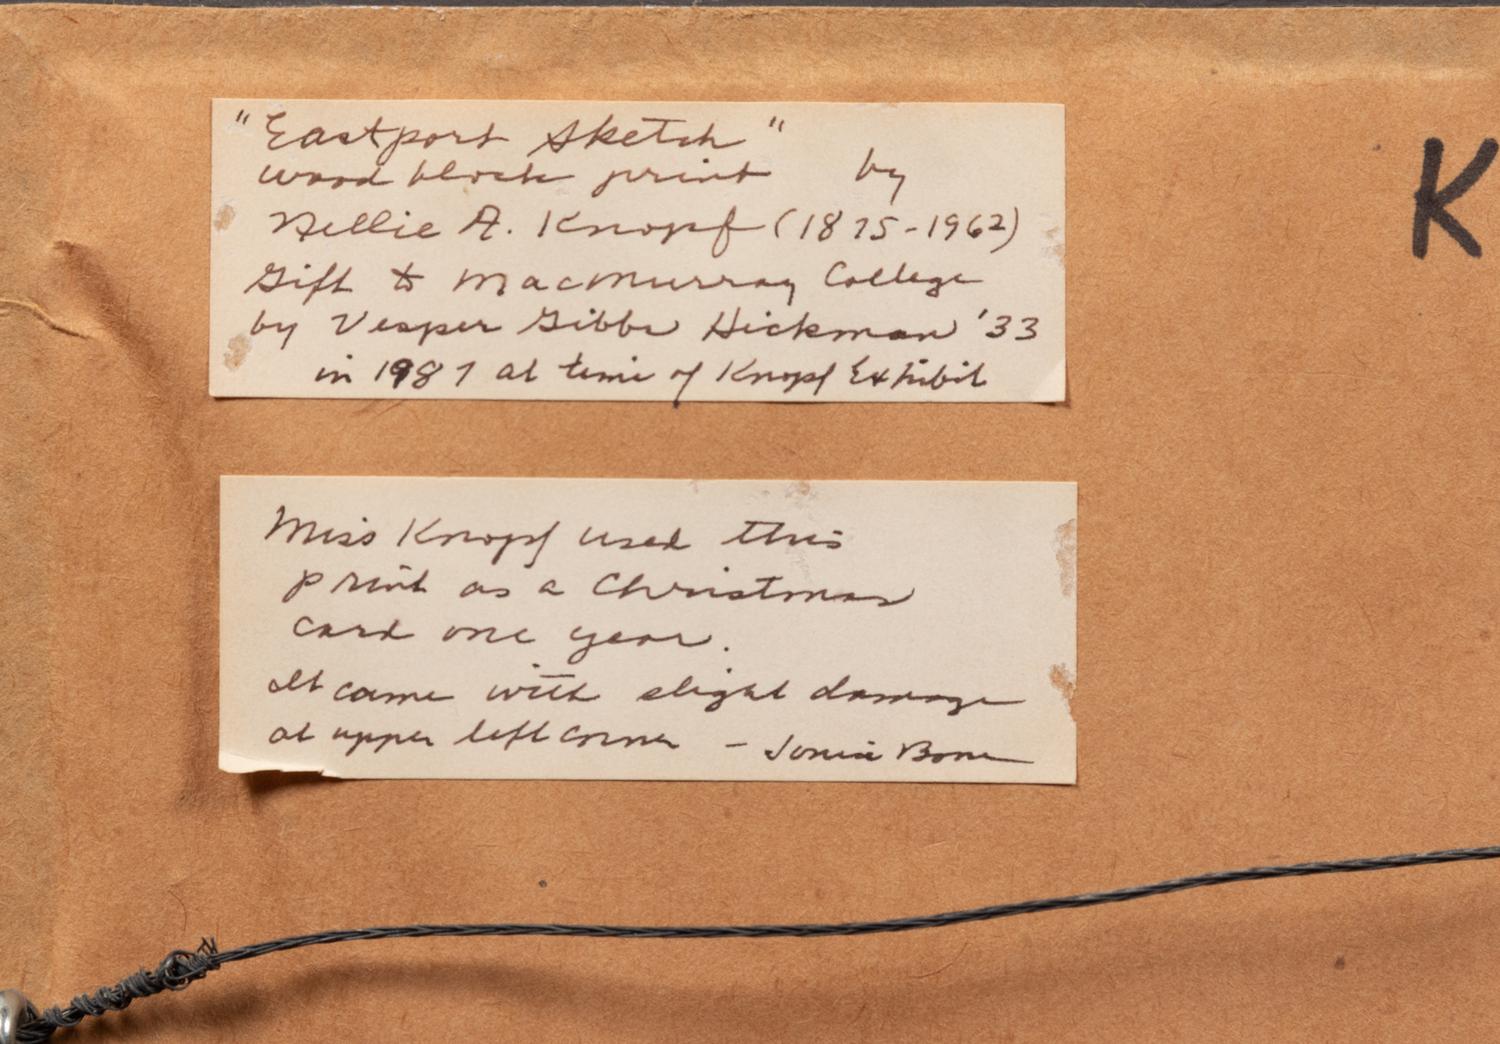 "Eastport Sketch"
wood block print by
Nellie A. Knopf (1875-1962)
Gift to MacMurray College
by Vesper Gibbs Hickman '33
in 1987 at time of Knopf Exhibit
Miss Knopf used this
print as a Christmas
card one year.
It came with slight damage
at upper left corner - Louise Bone
K